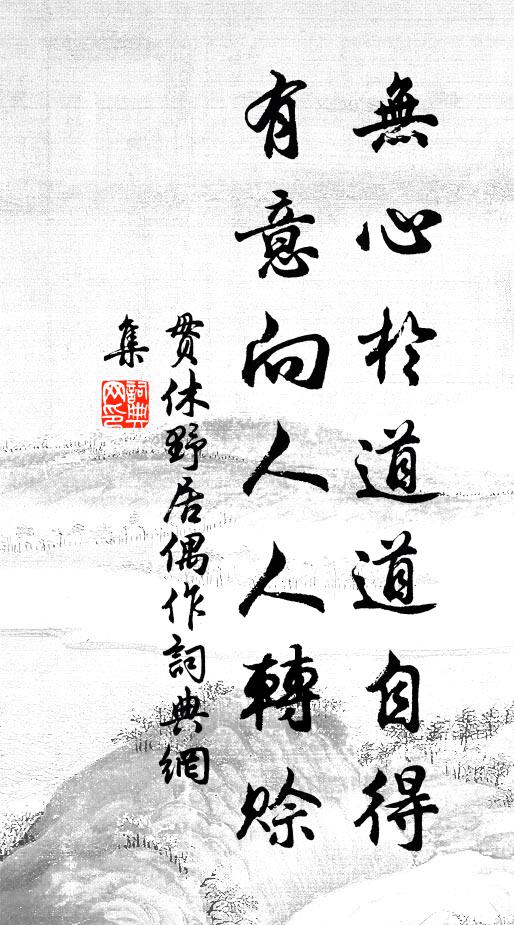 無心於道道自得
有意向人人轉賒
貫休野居偶作詞典網
集
詞典
网印